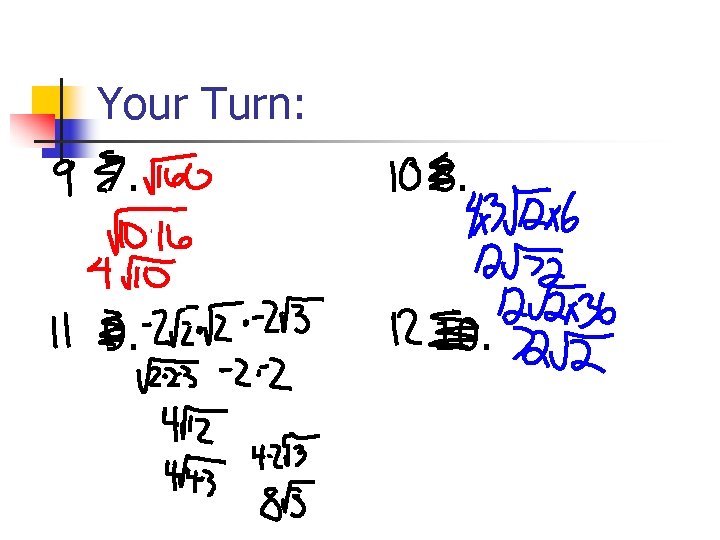 Your Turn:
9 7. √160
√10·16
4√10
10 8.
4x3√12x6
12√72
12√2x36
72√2
11 9. -2√2·√2·-2√3
√2·2·3 -2·-2
4√12
4√4·3
4·2√3
8√3
12 10.